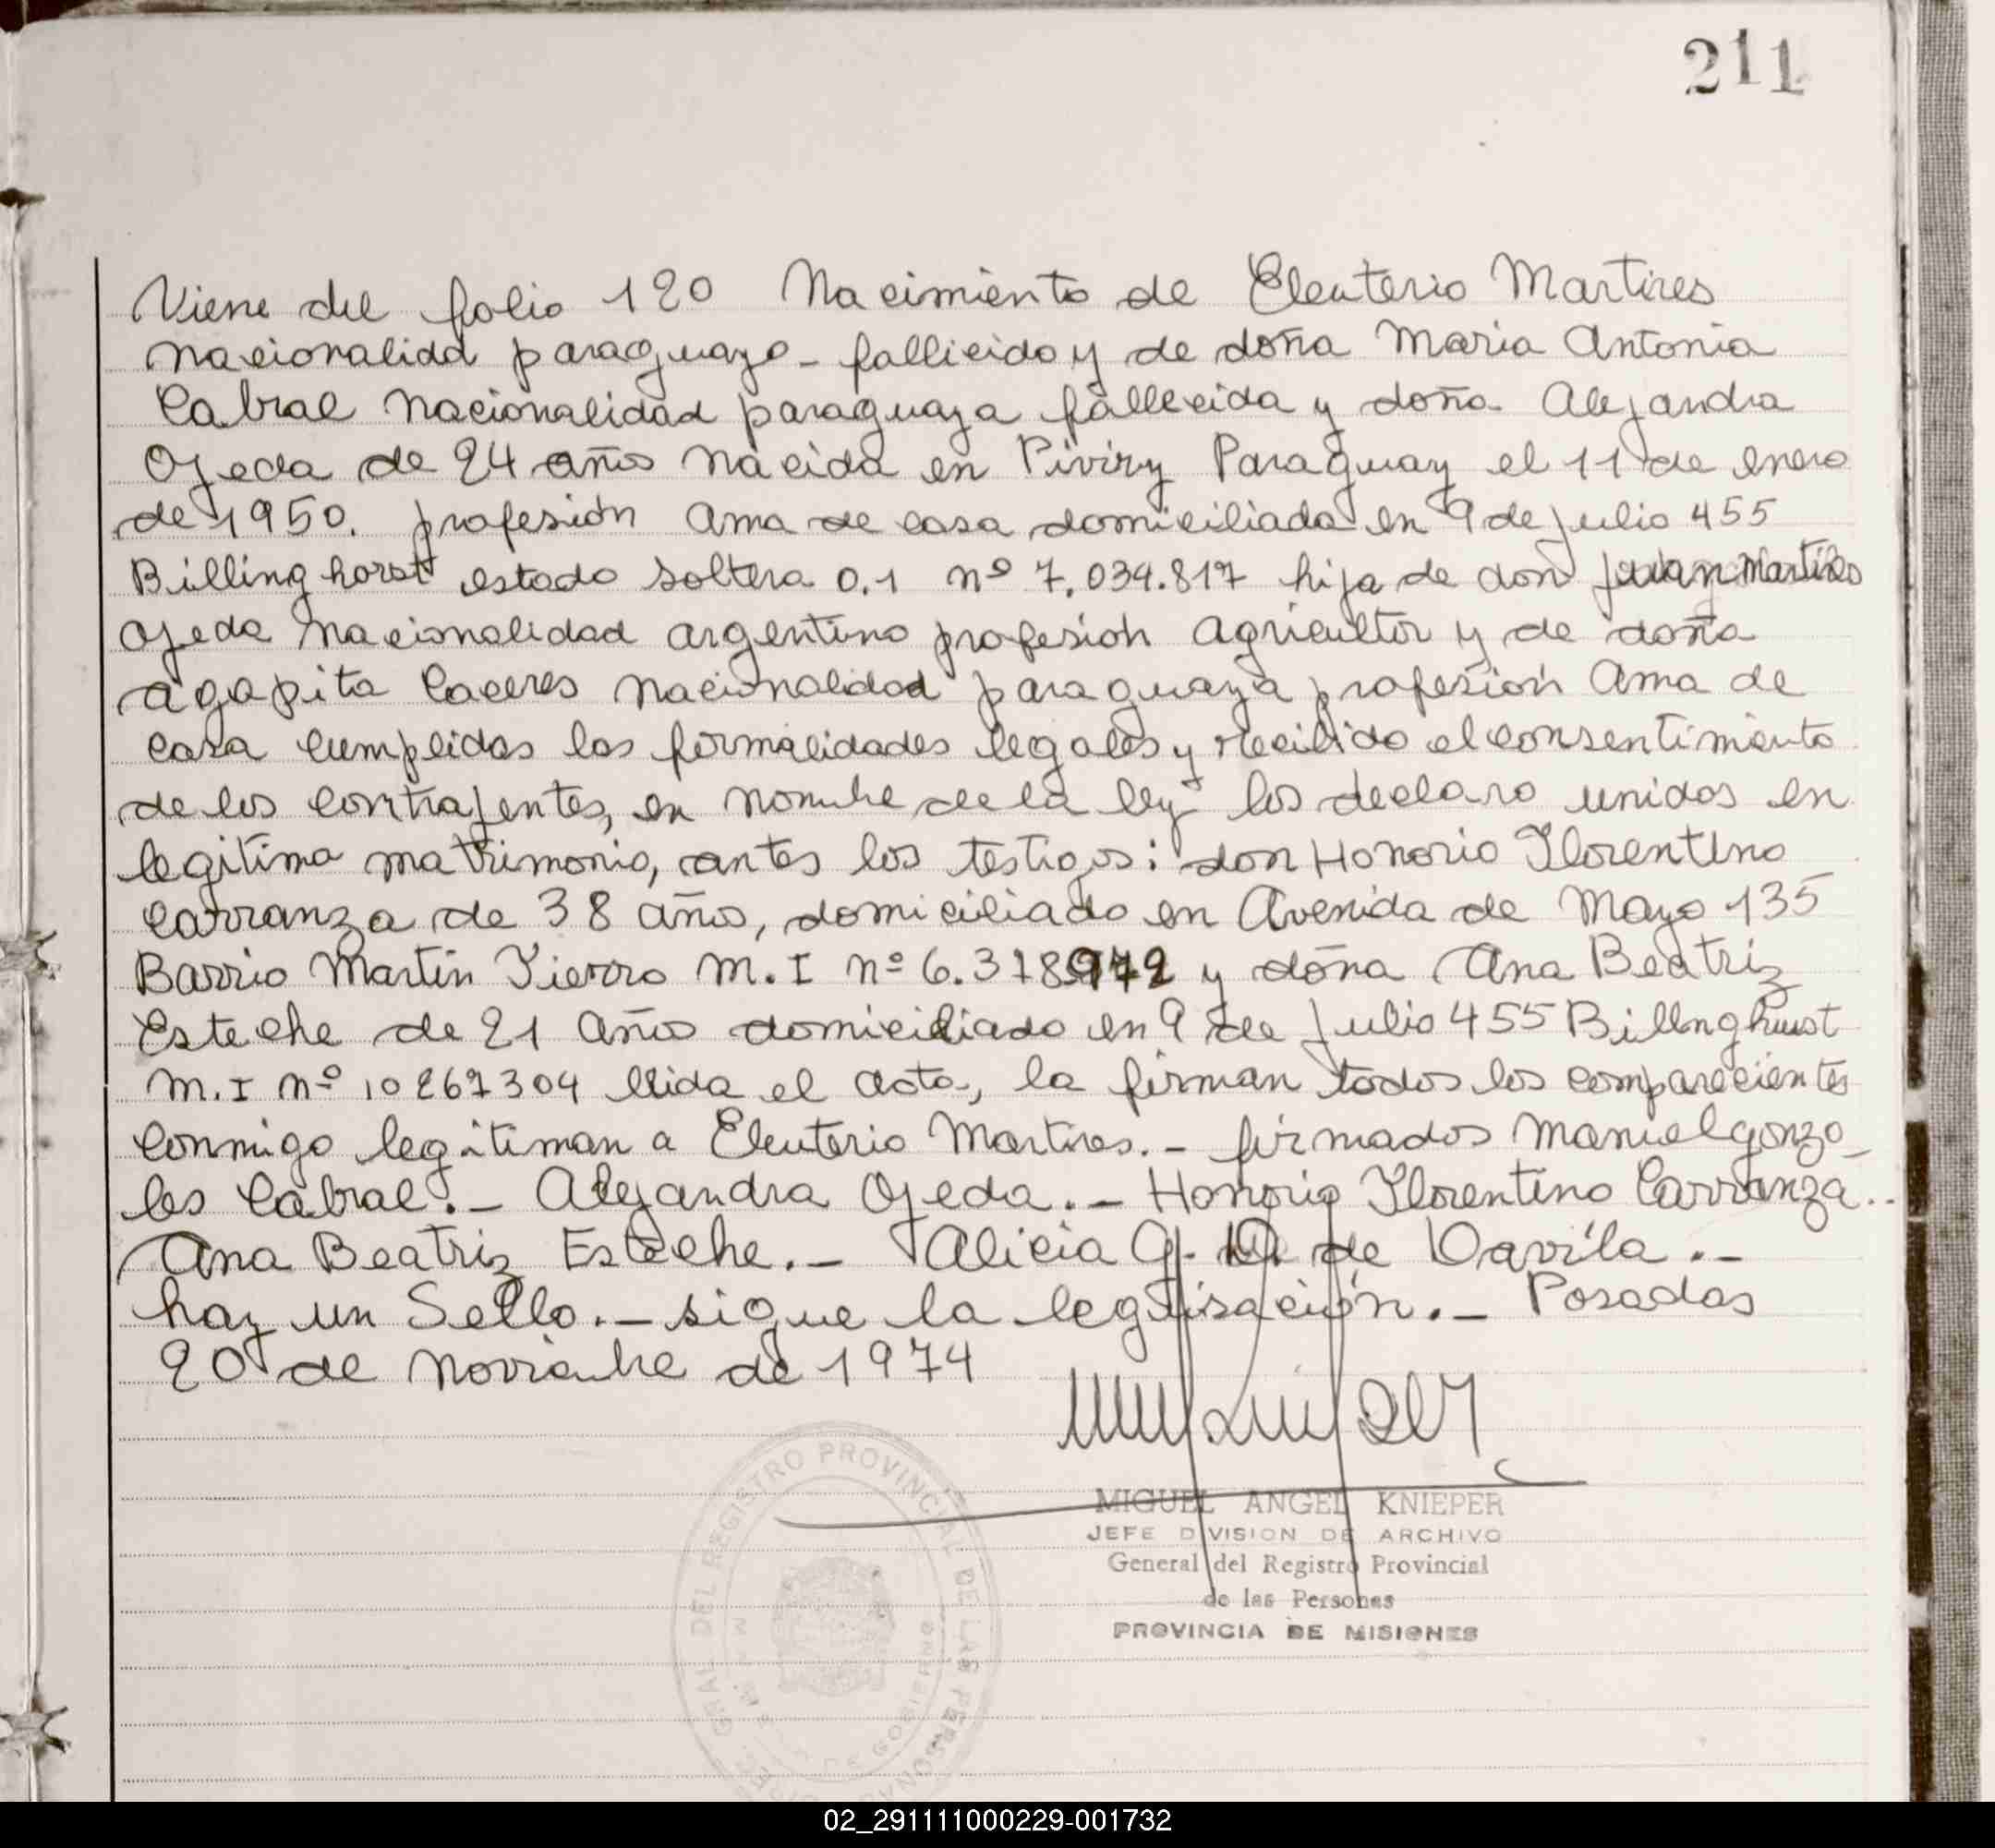 211
Viene del folio 120 Nacimiento de Eleuterio Martires
nacionalidd paraguayo - fallicido y de doña Maria Antonia
Cabral nacionalidad paraguaya fallecida y doña Alejandra
Ojeda de 24 años nacida en Piviry Paraguay el 11 de enero
de 1950. profesión Ama de casa domiciliada en 9 de julio 455
Billinghorst estado soltera O.1 nº 7.034.817 hija de don Juan Martires
Ojeda nacionalidad argentino profesion agricultor y de doña
agapita Caceres nacionalidad paraguaya profesión Ama de
casa cumplidas las formalidades legales y recibido el consentimiento
de los contrajentes, en nombre de la ley los declaro unidos en
legitimo matrimonio, antes los testigos: don Honorio Florentino
Carranza de 38 años, domiciliado en Avenida de Mayo 135
Barrio Martin Fierro M.I nº 6.378972 y doña Ana Beatriz
Esteche de 21 años domiciliado en 9 de julio 455 Billnghust
M.I nº 10267304 llida el acta, la firman todos los comparecientes
conmigo legitiman a Eleuterio Martires.- firmados Manuel gonza
les Cabral.- Alejandra Ojeda.- Honorio Florentino Carranza..
Ana Beatriz Esteche.- Alicia G. D. de Davíla.-
hay un Sello.- sigue la legalisación.- Posadas
20 de noviembre de 1974
MIGUEL ANGEL KNIEPER
JEFE DIVISION DE ARCHIVO
General del Registro Provincial
de las Personas
PROVINCIA DE MISIONES
GRAL. DEL REGISTRO PROVINCIAL DE LAS PERSONAS
02_291111000229-001732